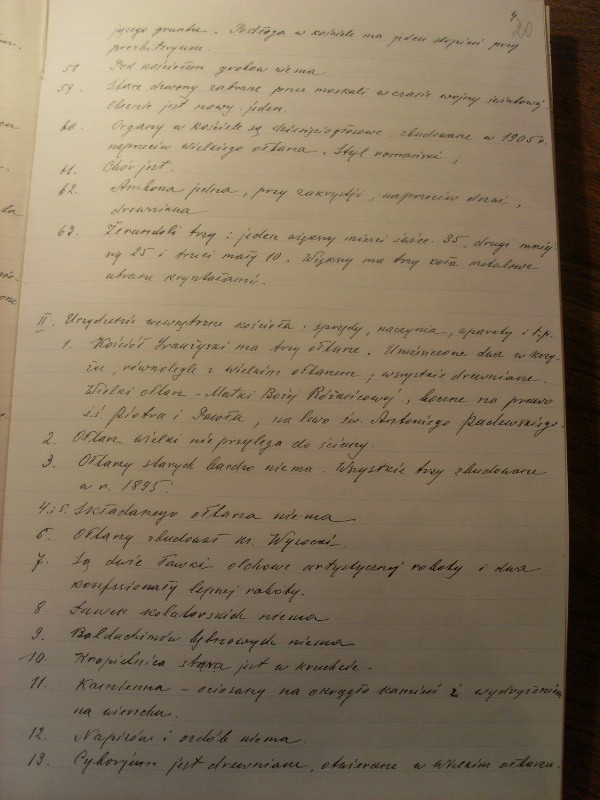 4
20
jącego gruntu. Podłoga w kościele ma jeden stopień przy
prezbiteryum.
58. Pod kościołem grobów niema
59. Stare dzwony zabrane przez moskali w czasie wojny światowej.
Obecnie jest nowy jeden.
60. Organy w kościele są dziesięciogłosowe, zbudowane w 1905 r.
naprzeciw wielkiego ołtarza. Styl romański;
61. Chór jest.
62. Ambona jedna, przy zakrystji, naprzeciw drzwi,
drewniana
63. Żerandoli trzy: jeden większy mieści świec 35, drugi mniej
szy 25 i trzeci mały 10. Większy ma trzy koła metalowe
ubrane kryształami.
II. Urządzenie wewnętrzne kościoła: sprzęty, naczynia, aparaty i t.p.
1. Kościół Iszczyski ma trzy ołtarze. Umieszczone dwa w krzy-
żu, równolegle z wielkim ołtarzem; wszystkie drewniane.
Wielki ołtarz - Matki Bożej Różańcowej, boczne na prawo
św. Piotra i Pawła, na lewo św. Antoniego Padewskiego.
2. Ołtarz wielki nie przylega do ściany.
3. Ołtarzy starych bardzo niema. Wszystkie trzy zbudowane
w r. 1895.
4 i 5. Składanego ołtarza niema.
6. Ołtarzy zbudował ks. Wysocki.
7. Są dwie ławki olchowe artystycznej roboty i dwa
konfesjonały lepnej roboty.
8 Ławek kolatorskich niema
9. Baldachimów niema
10. Kropielnica stara jest w kruchcie.
11. Kamienna - ociosany na okrągło kamień z wydrążeniem
na wierzchu.
12. Napisów i ozdób niema.
13. Cyborjum jest drewniane, otwierane w Wielkim ołtarzu.